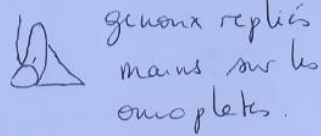 genoux repliés
mains sur les
omoplates.